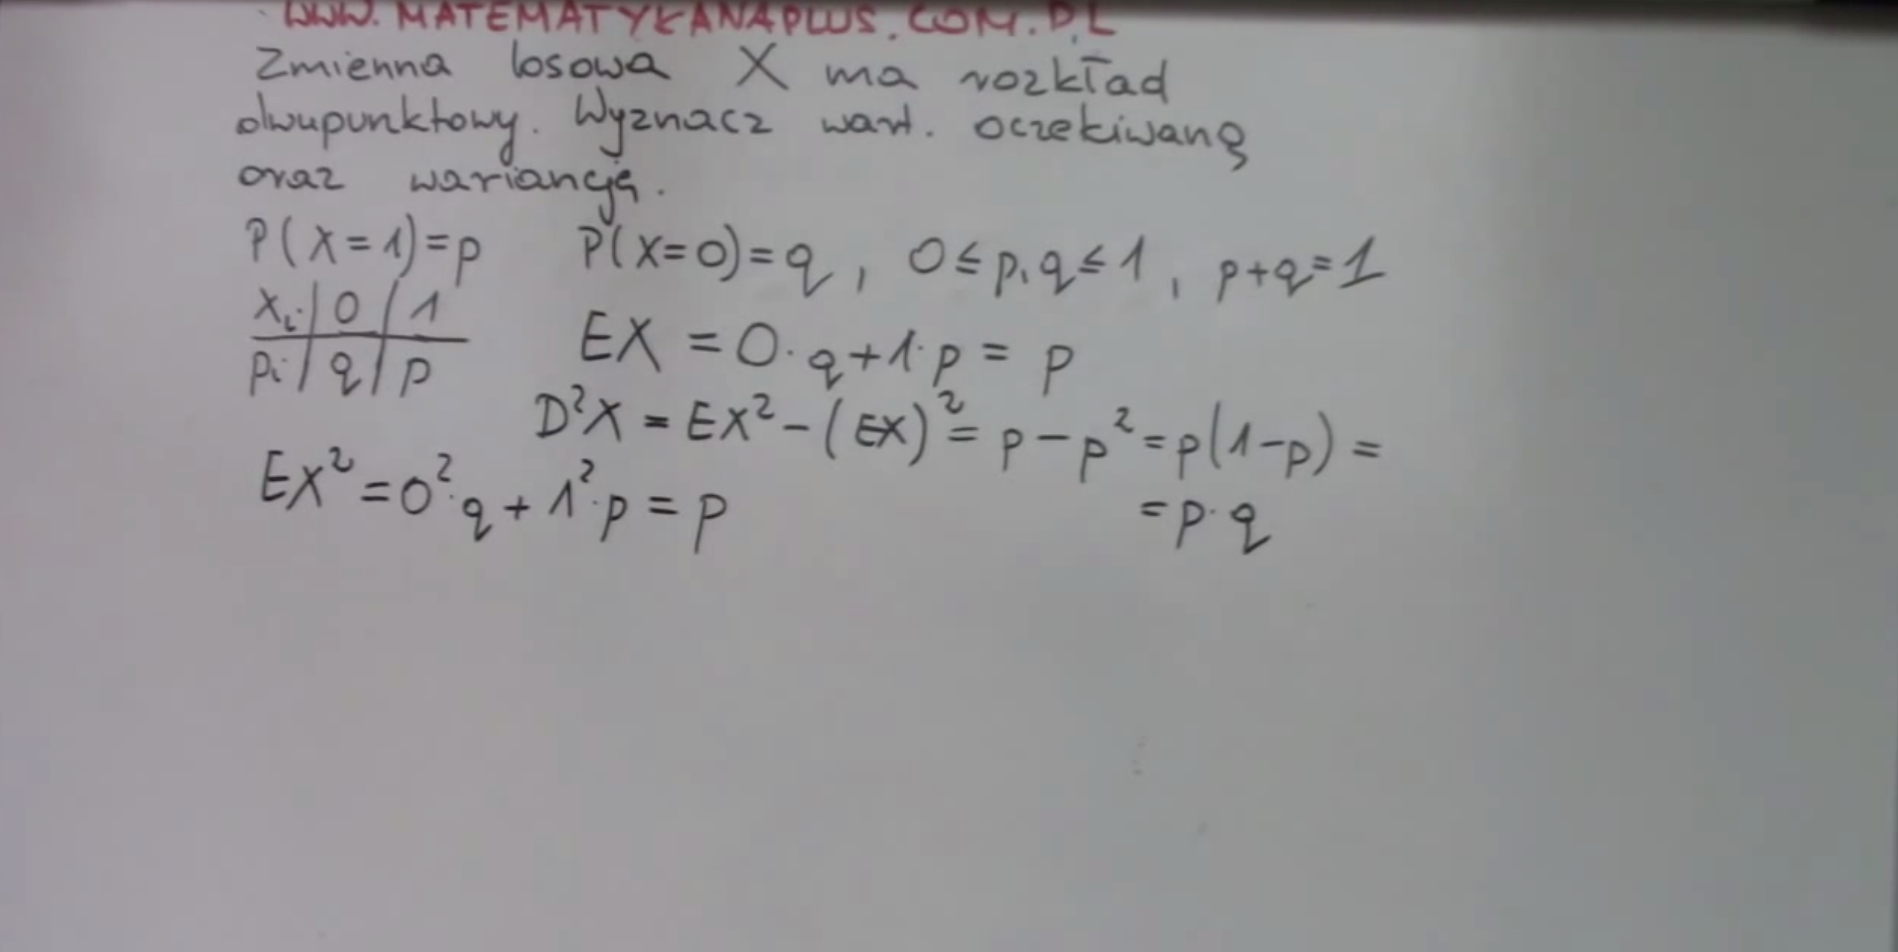 WWW.MATEMATYKANAPLUS.COM.PL
Zmienna losowa X ma rozkład
dwupunktowy. Wyznacz wart. oczekiwaną
oraz wariancję.
P(X=1)=p P(X=0)=q, 0≤p,q≤1, p+q=1
xᵢ | 0 | 1
pᵢ | q | p
EX = 0·q+1·p = p
D²X = EX²-(EX)² = p-p² = p(1-p) =
= p·q
EX² = 0²·q + 1²·p = p